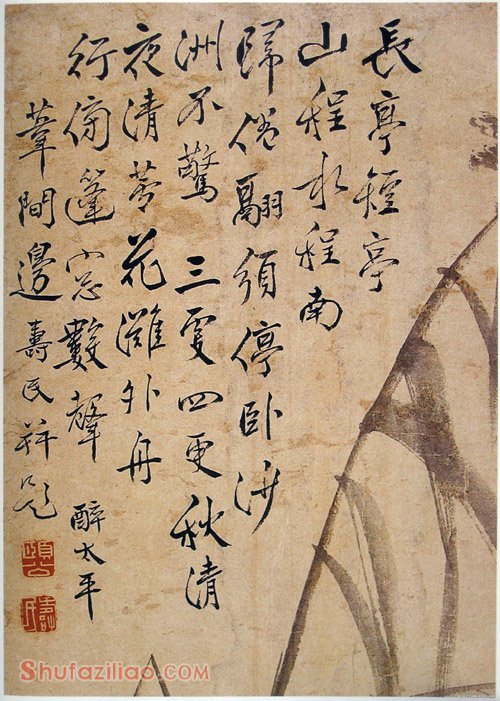 長亭短亭
山程水程南
歸倦翮須停臥沙
洲不驚 三更四更秋清
夜清蘆花灘外舟
行傍篷窗數聲 醉太平
葦間邊壽民並題
頤公
壽民
Shufaziliao.COM